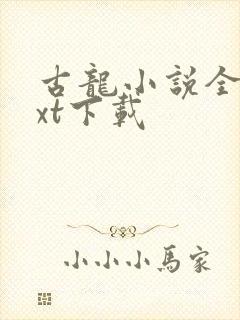 古龍小説全
xt下載
小小小馬家